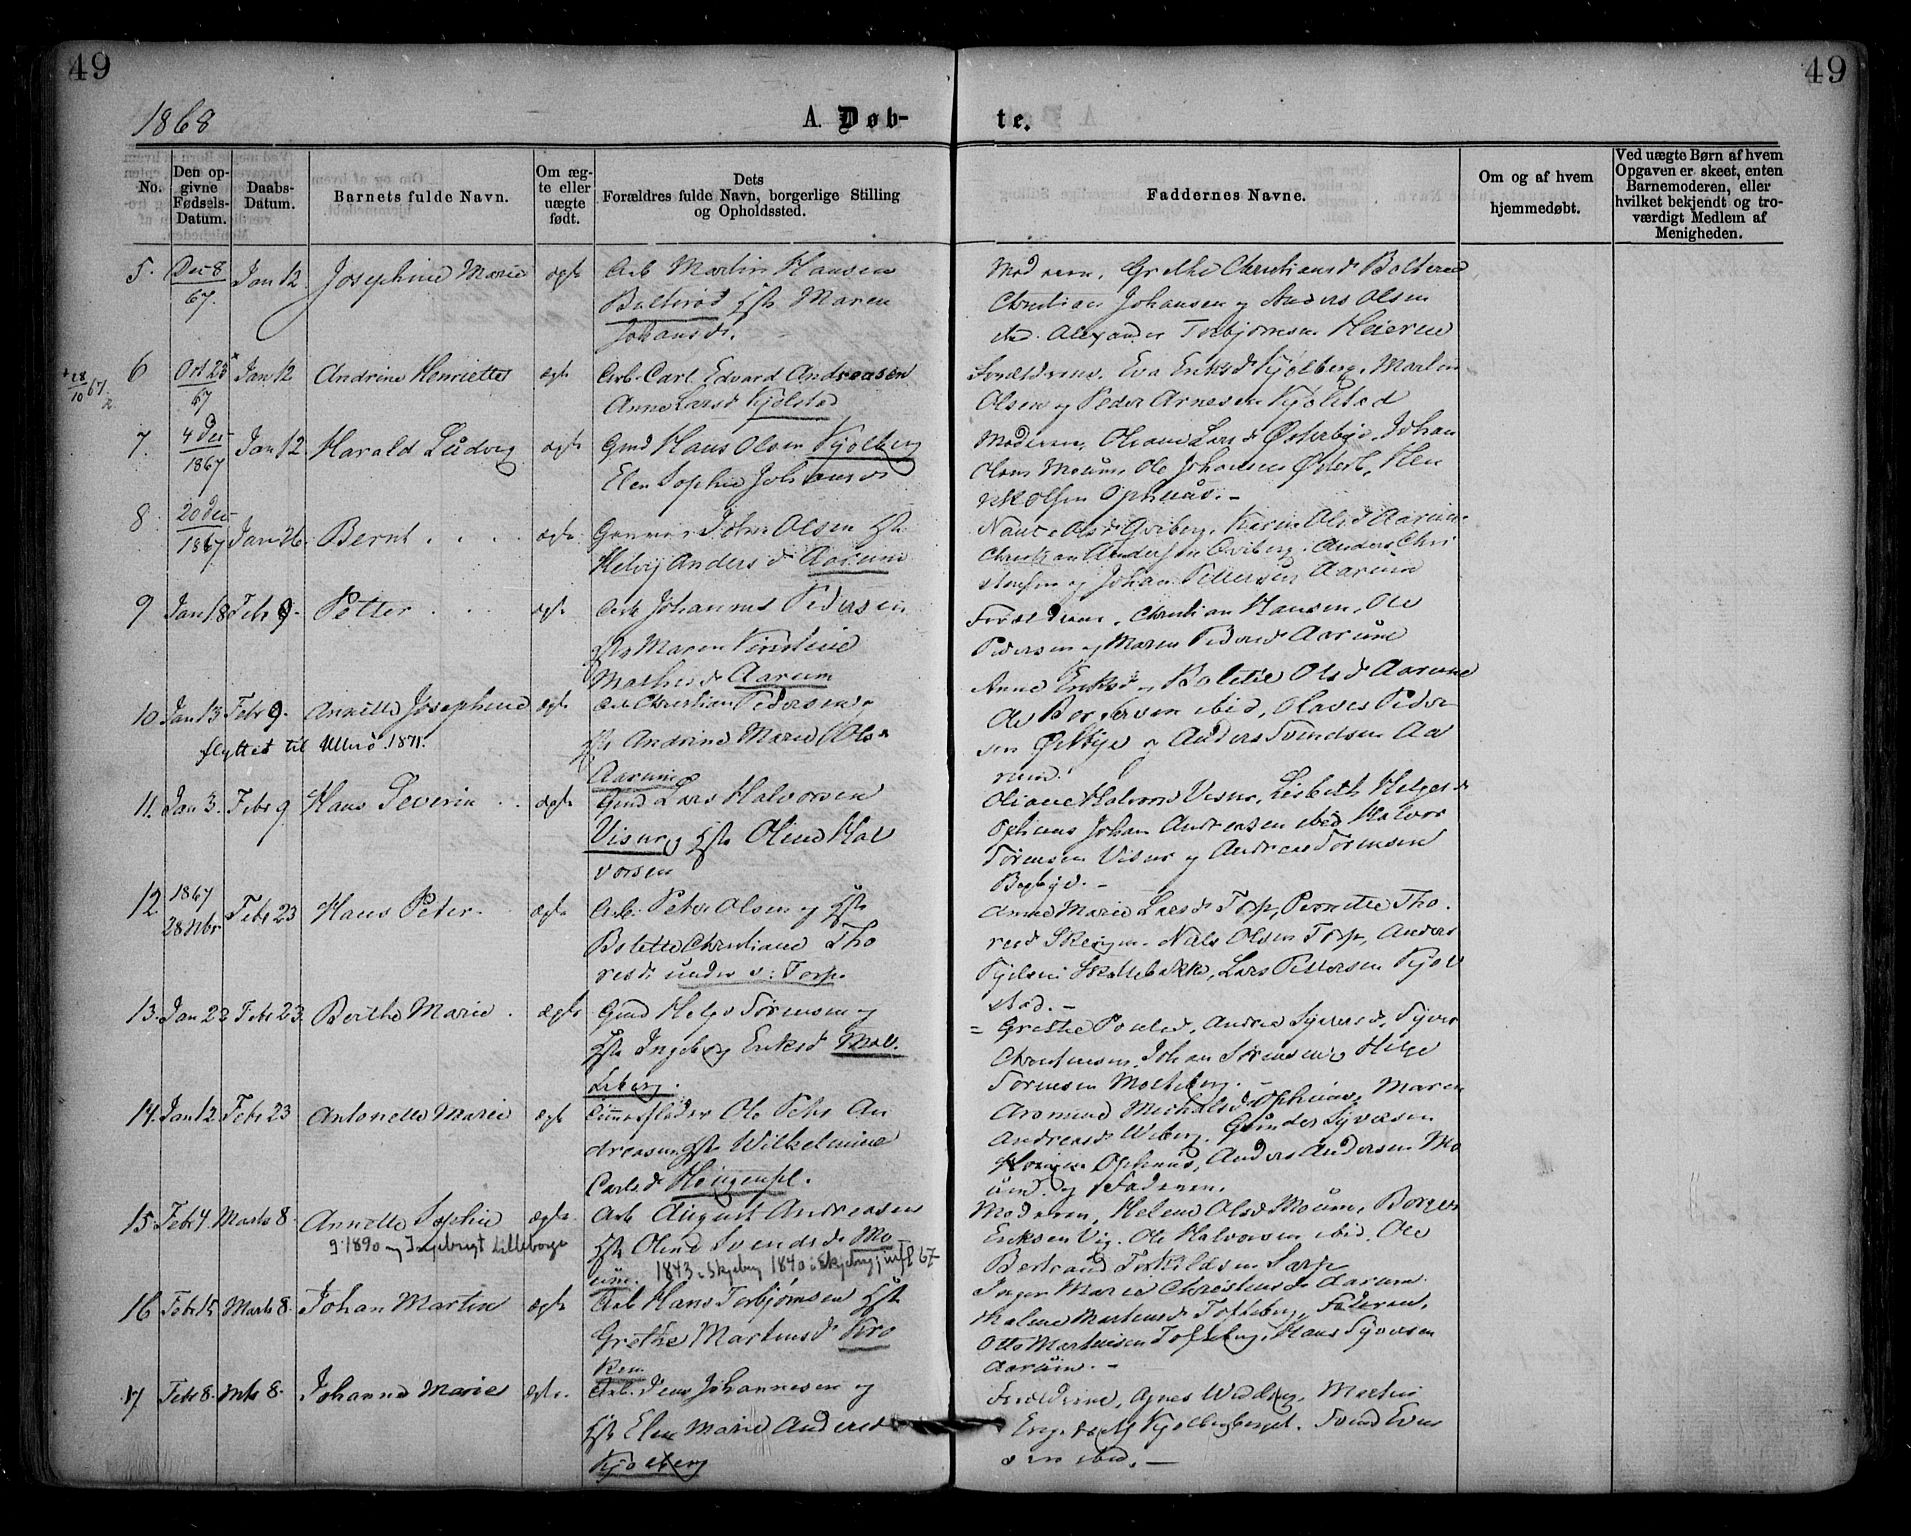 49
49
1868
A. Døb-
te.
No.
Den op-
givne
Fødsels-
Datum.
Daabs-
Datum.
Barnets fulde Navn.
Om æg-
te eller
uægte
født.
Dets
Forældres fulde Navn, borgerlige Stilling
og Opholdssted.
Faddernes Navne.
Om og af hvem
hjemmedøbt.
Ved uægte Børn af hvem
Opgaven er skeet, enten
Barnemoderen, eller
hvilket bekjendt og tro-
værdigt Medlem af
Menigheden.
5. Dec 8 67. Jan 12 Josephine Marie ægte Arb Martin Hansen
Balterød Hst Maren
Johansd.
Moderen, Grethe Christiansd Balterød
Christian Johansen og Anders Olsen
Alexander Torbjørnsen Heierne
6 Oct 23 67 Jan 12 Andrine Henriette ægte Arb. Carl Edvard Andreasen
Anne Larsd Kjølstad
Forældrene, Eva Eriksd Kjølberg, Martin
Olsen og Peder Arnesen Kjølstad
7. 4 Des 1867 Jan 12 Harald Ludvig ægte Gmd Hans Olsen Kjølberg
Elen Sophie Johansd
Moderen, Oliane Larsd Østerbye, Johan
Olsen Moum, Ole Johansen Østerb, Hen
rik Olsen Ophuus.-
8 20 Des 1867 Jan 26 Bernt ægte John Olsen Hst
Helvig Andersd Aarum
Olsd Qviberg, Karen Olsd Aarum
Christian Andersen Qviberg, Anders Chri
stensen og Johan Pettersen Aarum
9 Jan 18 Febr 9. Petter ægte Arb Johannes Pedersen
Hst Maren Kirstine
Mathisd Aarum
Forældrene, Christian Hansen, Ole
Pedersen og Maren Pedersd Aarum
10 Jan 13 Febr 9. Annette Josephine ægte Arb Christian Pedersen
Hst Andrine Marie Ols
Aarum
flyttet til Ullerø 1871.
Anne Eriksd og Bolette Olsd Aarum
Ole Borgersen ibid, Olaves Peder
sen Østbye og Anders Svendsen Aa
rum.
11. Jan 3. Febr 9 Hans Severin ægte Gmd Lars Halvorsen
Visur, Hst Oline Hal
vorsen
Oliane Halvors Visur, Lisbeth Helgesd
Ophuus Johan Andersen ibid Halvor
Sørensen Visur og Andreas Sørensen
Begbye.-
12 1867 28 Nbr Febr 23 Hans Peter. ægte Arb. Peter Olsen og Hst
Bolette Christiane Tho
resd. under s: Torp.
Anne Marie Larsd Torp, Pernette Tho.
resd Niels Olsen Torp, Anders
Skaltebakke, Lars Pettersen Kjøl
stad.-
13. Jan 22 Febr 23. Berthe Marie. ægte Gmd Helge Sørensen og
Hst Ingeborg Eriksd Mol.
leberg.
Grethe Andrea Syversd, Syver
Christensen, Johan Sørensen, Helge
Sørensen Molteberg.-
14. Jan 12 Febr 23 Antonette Marie ægte Ole Petr An
dreasen Hst Wilhelmine
Carlsd
Michalsd Ophuus, Maren
Andreasd Viberg, Gunder Syversen
Ophuus, Anders Andersen Mo
um og Faderen.
15. Febr 4. Marts 8. Annette Sophie ægte Arb August Andreasen
Hst Oline Svendsd Mo
um.
g. 1890 m Ingebrigt Lilleborge
1843 i Skjeberg 1840 i Skjeberg, infl 67
Moderen, Helene Olsd Moum, Borger
Eriksen Vig, Ole Halvorsen ibid, Ole
Bertrand Torkildsen Sarp
16 Febr 15 Marts 8. Johan Martin ægte Arb Hans Torbjørnsen Hst
Grethe Martinsd Kro
ken
Inger Marie Christensd Aarum
Malene Martinsd Tofteberg, Faderen,
Otto Martinsen Tofteberg, Hans Syversen
Aarum.-
17 Febr 8. Mts 8. Johanne Marie ægte. Arb. Jens Johannesen og
Hst Elen Marie Andersd
Kjølberg
Forældrene, Agnes Martin
Kjølbergberget. Svend Even
sen ibid.-